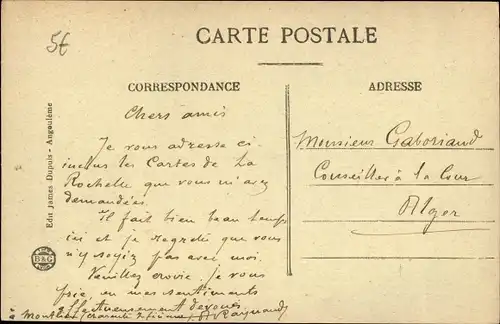 5€
CARTE POSTALE
CORRESPONDANCE
ADRESSE
Edit James Dupuis - Angoulême
B&G
Chers amis
Je vous adresse ci-
inclus les Cartes de La
Rochelle que vous m'avez
demandées.
Il fait bien beau temps
ici et je regrette que vous
n'y soyez pas avec moi.
Veuillez croire, je vous
prie, en mes sentiments
affectueusement dévoués
à
Raynaud
Monsieur Gaboriaud
Conseiller à la Cour
Alger